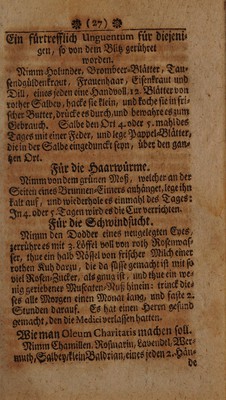 (27)
Ein fürtrefflich Unguentum für diejeni-
gen, so von dem Blitz gerühret
worden.
Nimm Holunder, Brombeer-Blätter, Tau-
sendgüldenkraut, Frauenhaar, Eisenkraut und
Dill, eines jeden eine Handvoll, 12. Blätter von
rother Salbey, hacke sie klein, und koche sie in fri-
scher Butter, drück es durch, und bewahre es zum
Gebrauch. Salbe den Ort 4. oder 5. mahl des
Tages mit einer Feder, und lege Pappel-Blätter,
die in der Salbe eingedunckt seyn, über den gan-
tzen Ort.
Für die Haarwürme.
Nimm von dem grünen Moß, welcher an der
Seiten eines Brunnen-Eimers anhänget, lege ihn
kalt auf, und wiederhole es einmahl des Tages:
In 4. oder 5. Tagen wird es die Cur verrichten.
Für die Schwindsucht.
Nimm den Dodder eines neugelegten Eyes,
zerrühre es mit 3. Löffel voll von roth Rosenwas-
ser, thue ein halb Nössel von frischer Milch einer
rothen Kuh darzu, die da süsse gemacht ist mit so
viel Rosen-Zucker, als gnug ist, und thue ein we-
nig geriebene Muscaten-Nuß hinein: trinck die-
ses alle Morgen einen Monat lang, und faste 2.
Stunden darauf. Es hat einen Herrn gesund
gemacht, den die Medici verlassen hatten.
Wie man Oleum Charitatis machen soll.
Nimm Chamillen, Rosmarin, Lavendel, Wer-
muth, Salbey, klein Baldrian, eines jeden 2. Hän-
de